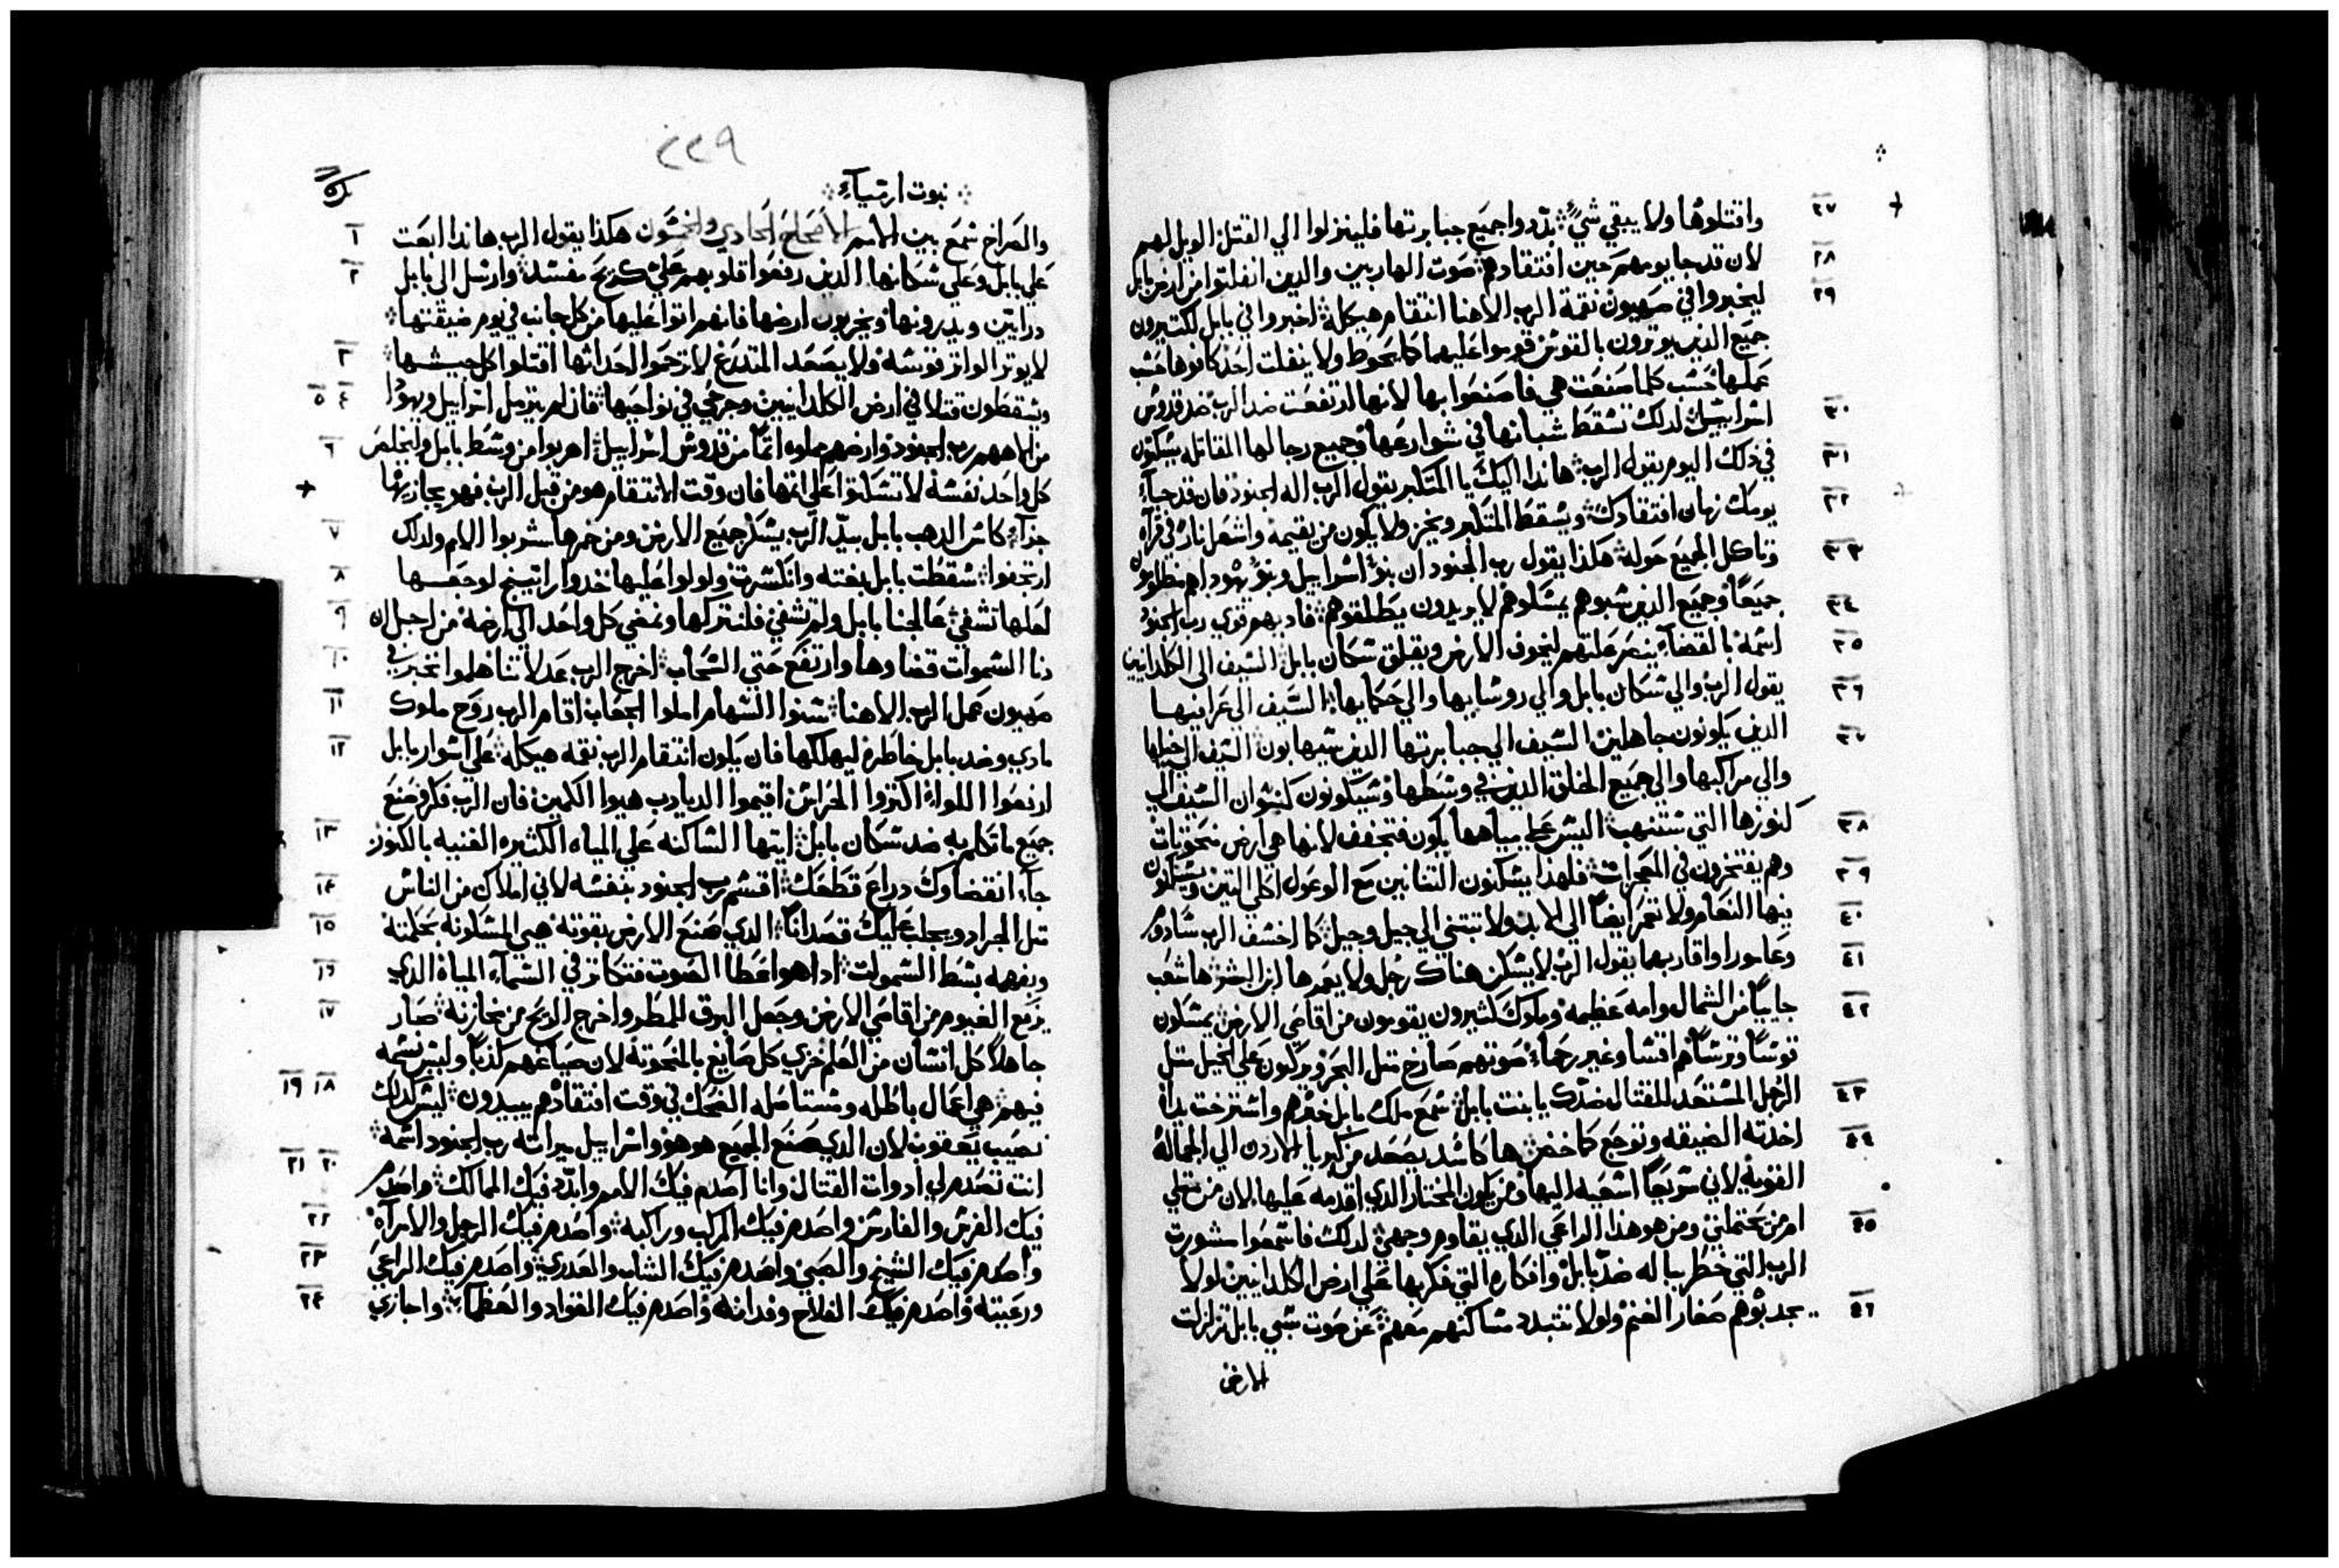 ٢٧ واقتلوها ولا يبقي شيً بدّدوا جميع جبابرتها فلينزلوا الي القتل الويل لهم
٢٨ لان قد جا يومهم حين افتقادهم صوت الهاربين والدين انفلتوا من ارض بابل
٢٩ ليخبروا في صهيون نقمة الرب الاهنا انتقام هيكله اخبروا في بابل لكتيرون
جميع الدين يوترون بالقوش قوموا عليهما كما يحوط ولا ينفلت احد كافوها حشب
عملها حشب كلما صنعت هي فاصنعوا بها لانها ارتفعت ضد الرب ضد قدوش
٣٠ اشراييل لدلك تشقط شبانها في شوارعها وجميع رجالها المقاتله يشكتون
٣١ في دلك اليوم يقول الرب هاندا اليك يا المتكبر يقول الرب اله الجنود فان قد جآء
٣٢ يومك زمان افتقادك ويشقط المتكبر ويخر ولا يكون من يقيمه واشعل نار في قرآه
٣٣ وتاكل الجميع حوله هكذا يقول رب الجنود ان بنو اشراييل وبنو يهودا هم مظلومون
٣٤ جميعاً وجميع الدين شبوهم يمشكوهم لا يريدون يطلقوهم فاديهم قوي رب الجنود
٣٥ اشمه بالقضآء ينصر علتهم ليخوف الارض ويقلق شكان بابل الشيف الي الكلدانيين
٣٦ يقول الرب والي شكان بابل والي روشايها والي حكمايها الشيف الي عرافيها
٣٧ الدين يكونون جاهلين الشيف الي جبابرتها الدين شيهابون الشيف الي خيلها
والي مراكبها والي جميع الخلق الدين في وشطها وشيكونون كنشوان الشيف الي
٣٨ كنوزها التي شتنهب اليبش علي مياهها يكون فتجفف لانها هي ارض منحوتات
٣٩ وهم يفتخرون في المعجزات فلهذا يشكنون التنانين مع الوعول اكلي التين ويشكنون
٤٠ فيها النعام ولا تعمر ايضاً الي الابد ولا تبتني الي جيل وجيل كما اخشف الرب شادوم
٤١ وعامورا واقاربهما يقول الرب لا يشكن هناك رجل ولا يعمرها ابن البشر ها شعب
٤٢ جايياً من الشمال وامه عظيمه وملوك كثيرون يقومون من اقاصي الارض يمشكون
قوشاً وترشاً هم اقشا وغير رحما صوتهم صارخ متل البحر ويركبون علي الخيل متل
٤٣ الرجل المشتعد للقتال ضدك يا بنت بابل شمع ملك بابل خبرهم واشترخت يداه
٤٤ اخدته الضيقه وتوجع كماخض ها كاشد يصعد من كبريا الاردن الي الجماله
القويه لاني شريعاً اشعيه اليها ومن يكون المختار الدي اقدمه عليها لان من متلي
٤٥ امن من يحتملني ومن هو هذا الراعي الدي يقاوم وجهي لدلك فاشمعوا مشورت
الرب التي خطر بباله ضد بابل وافكاره التي فكر بها علي ارض الكلدانيين لولا
٤٦ يجدبوهم صغار الغنم ولولا تتبدد مشاكنهم معهم عن صوت شبي بابل تزلزلت
الارض
٢٢٩
نبوت ارميآء
والصراخ شمع بين الامم الاصحاح الحادي والخمشون هكذا يقول الرب هاندا ابعت ١
علي بابل وعلي شكانها الدين رفعوا قلوبهم علي كريح مفشد وارشل الي بابل ٢
درايين ويدرونها ويخربون ارضها فانهم اتوا عليها من كل جانب في يوم ضيقتها
لا يوتر الواتر قوشه ولا يصعد المتدرع لا ترحموا احداثها اقتلوا كل جيشها ٣
ويشقطون قتلا في ارض الكلدانيين وجرحي في نواحيها فان لم يترمل اشراييل ويهودا ٤ ٥
من الاههم رب الجنود وارضهم مملوه اتماً من قدوش اشراييل اهربوا من وشط بابل وليخلص ٦
كل واحد نفشه لا تشكتوا علي اتمها فان وقت الانتقام هو من قبل الرب فهو يجازيها
جزآء كاش الدهب بابل بيد الرب يشكر جميع الارض ومن خمرها شربوا الامم ولدلك ٧
ارتجفوا شقطت بابل بغته وانكشرت ولولوا عليها خدوا راتينج لوجعها ٨
لعلها تشفي عالجنا بابل ولم تشفي فلنتركها ونمضي كل واحد الي ارضه من اجل ان ٩
دنا الشموات قضاوها وارتفع حتي الشحاب اخرج الرب عدلنا هلموا نخبر في ١٠
صهيون عمل الرب الاهنا شنوا الشهام املوا الجعاب اقام الرب روح ملوك ١١
مادي وضد بابل خاطره ليهلكها فان يكون انتقام الرب نقمه هيكله علي اشوار بابل ١٢
ارفعوا اللواء اكتروا الحراش اقيموا الديادب هيوا الكمين فان الرب فكر وصنع
جميع ما تكلم به ضد شكان بابل ايتها الشاكنه علي المياه الكثيره الغنيه بالكنوز ١٣
جآء انقضاوك دراع قطعك اقشم رب الجنود بنفشه لاني املاك من الناش ١٤
متل الجراد ويجلب عليك قصدانا الدي صنع الارض بقوته هيي المشكونه بحكمته ١٥
وبفهمه بشط الشموات ادا هو اعطا الصوت فتكاتر في الشمآء المياه الدي ١٦
يرفع الغيوم من اقاصي الارض وجعل البرق للمطر واخرج الريح من مخازنه صار ١٧
جاهلاً كل انشان من العلم خزي كل صايغ بالمنحوته لان صياغهم كذباً وليش نشمه
فيهم هي اعمال باطله ومشتاهله الضحك في وقت افتقادهم يبيدون ليش كدلك ١٨ ١٩
نصيب يعقوب لان الدي صنع الجميع هو هو واشراييل ميراته رب الجنود اشمه
انت تصدم لي ادوات القتال وانا اصدم فيك الامم وابدّد فيك الممالك واصدم ٢٠ ٢١
فيك الفرش والفارش واصدم فيك المركب وراكبه واصدم فيك الرجل والامرآه ٢٢
واصدم فيك الشيخ والصبي واصدم فيك الشاب والعدري واصدم فيك الراعي ٢٣
ورعيته واصدم فيك الفلاح وفدانه واصدم فيك القواد والعظمآء واجازي ٢٤